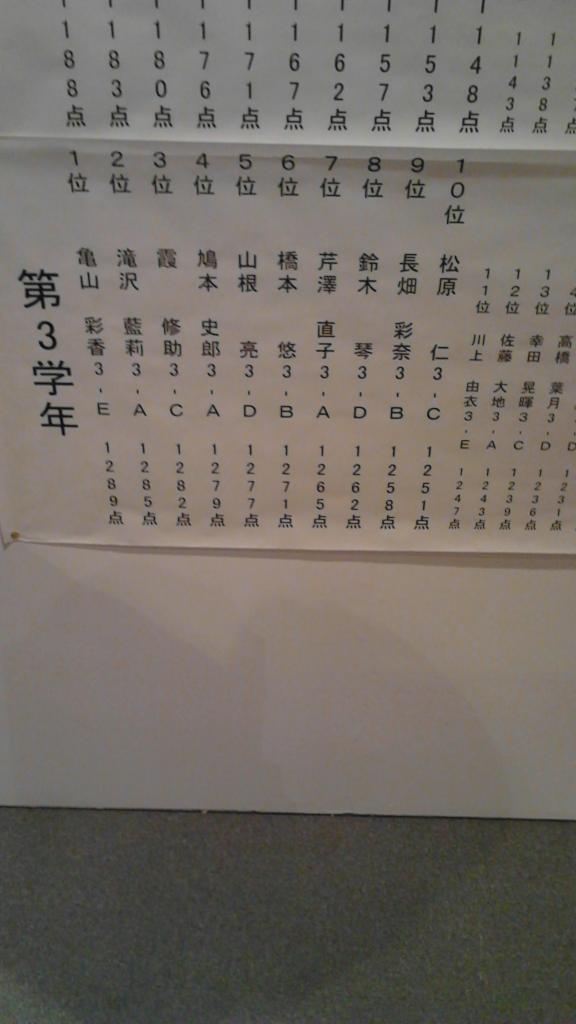 1188点
1183点
1180点
1176点
1171点
1167点
1162点
1157点
1153点
1148点
1143点
1138点
第3学年
1位 亀山 彩香 3-E 1289点
2位 滝沢 藍莉 3-A 1285点
3位 霞 修助 3-C 1282点
4位 鳩本 史郎 3-A 1279点
5位 山根 亮 3-D 1277点
6位 橋本 悠 3-B 1271点
7位 芹澤 直子 3-A 1265点
8位 鈴木 琴 3-D 1262点
9位 長畑 彩奈 3-B 1258点
10位 松原 仁 3-C 1251点
11位 川上 由衣 3-E 1247点
12位 佐藤 大地 3-A 1243点
13位 幸田 晃暉 3-C 1239点
高橋 葉月 3-D 1236点
1231点